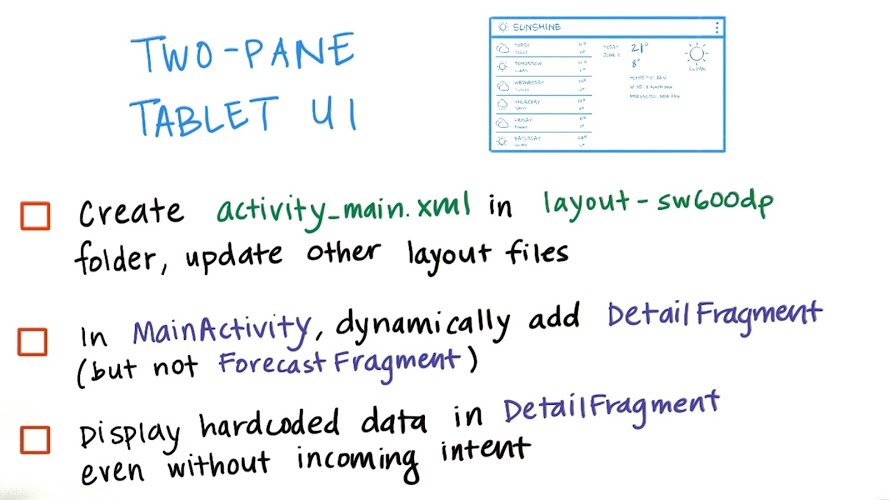 TWO-PANE
TABLET UI
SUNSHINE
TODAY
TOMORROW
WEDNESDAY
THURSDAY
FRIDAY
SATURDAY
TODAY
21°
8°
Create activity_main.xml in layout-sw600dp
folder, update other layout files
In MainActivity, dynamically add DetailFragment
(but not ForecastFragment)
Display hardcoded data in DetailFragment
even without incoming intent